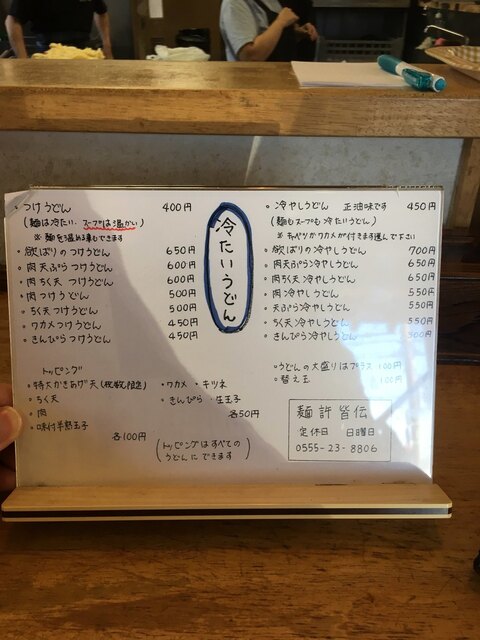 冷たいうどん
・つけうどん 400円
(麺は冷たい・スープは温かい)
※麺を温める事もできます
・欲ばりのつけうどん 650円
・肉天ぷらつけうどん 600円
・肉ちく天つけうどん 600円
・肉つけうどん 500円
・ちく天つけうどん 500円
・ワカメつけうどん 450円
・きんぴらつけうどん 450円
・冷やしうどん 正油味です 450円
(麺もスープも冷たいうどん)
※キャベツかワカメが付きます選んで下さい
・欲ばりの冷やしうどん 700円
・肉天ぷら冷やしうどん 650円
・肉ちく天冷やしうどん 650円
・肉冷やしうどん 550円
・天ぷら冷やしうどん 550円
・ちく天冷やしうどん 550円
・きんぴら冷やしうどん 500円
トッピング
・特大かきあげ天(枚数限定)
・ちく天
・肉
・味付半熟玉子
各100円
・ワカメ ・キツネ
・きんぴら ・生玉子
各50円
(トッピングはすべての
うどんにできます)
・うどんの大盛りはプラス 100円
・替え玉 100円
麺許皆伝
定休日 日曜日
0555-23-8806